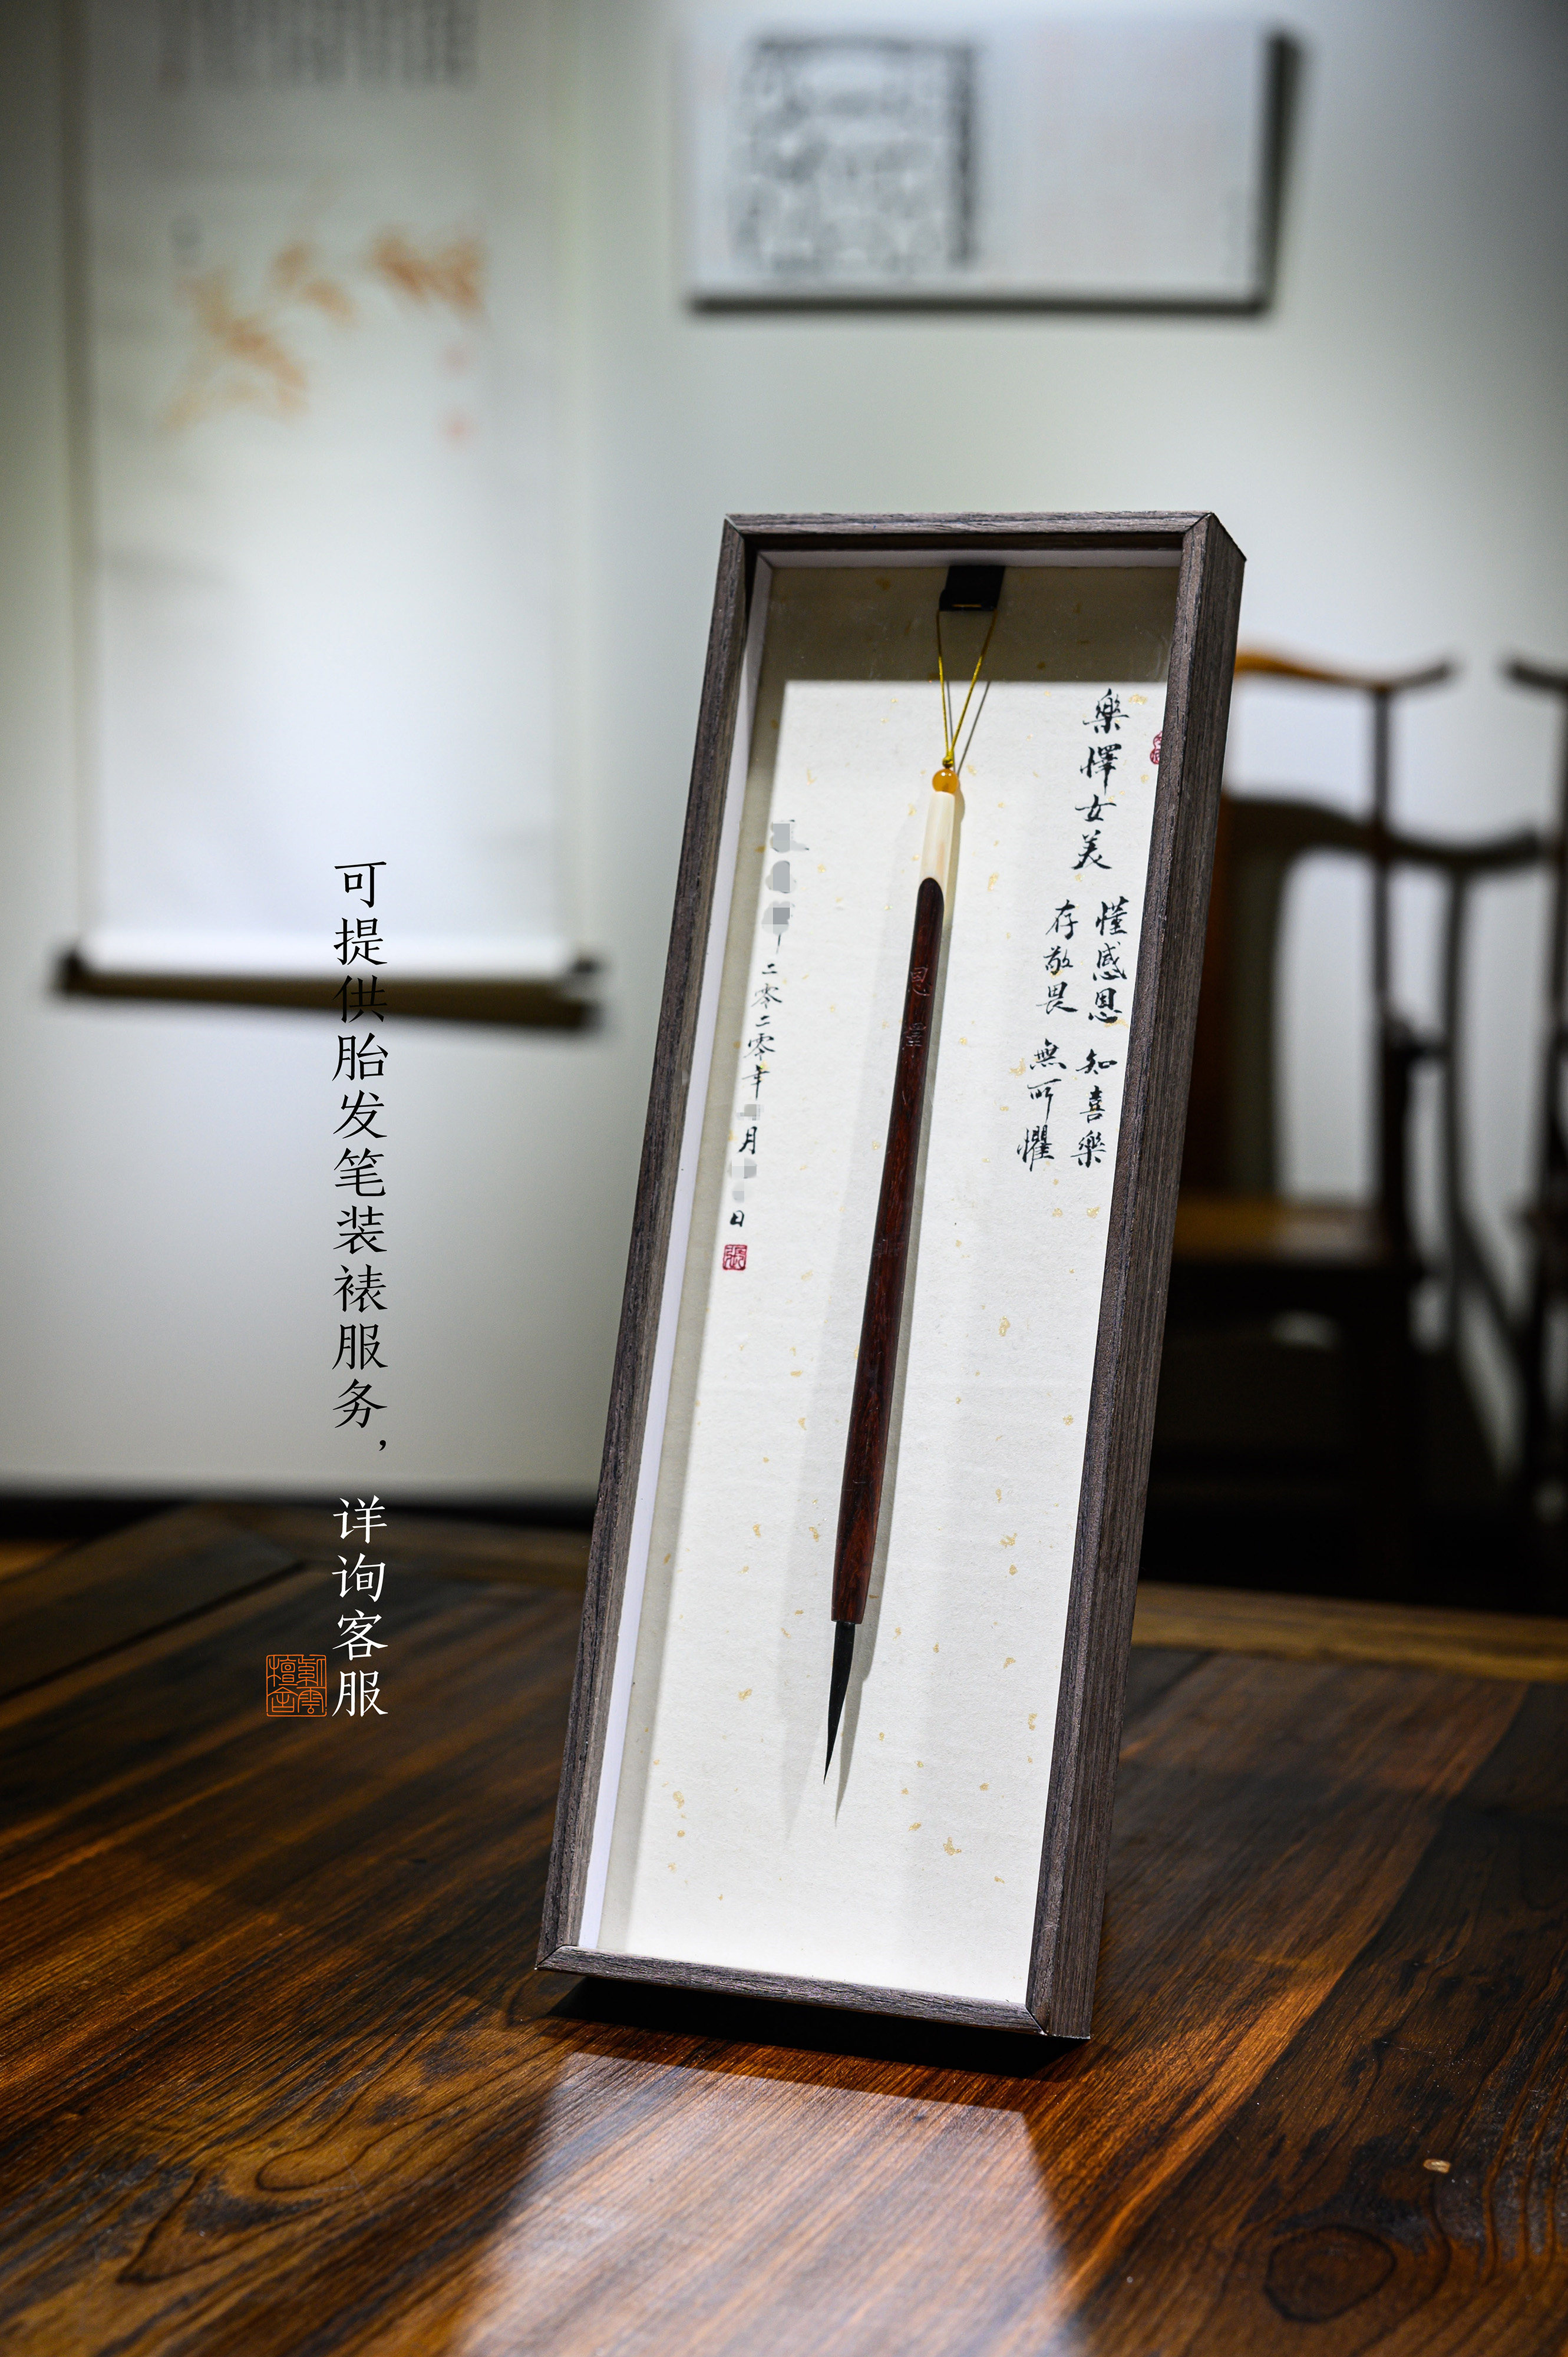 樂懌女美
懂感恩 知喜樂
存敬畏 無所懼
恩
二零二零年 月 日
張
可提供胎发笔装裱服务，详询客服